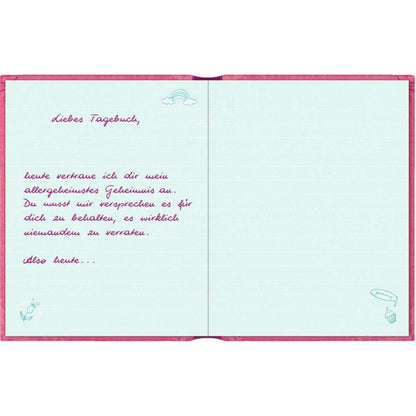 Liebes Tagebuch,
heute vertraue ich dir mein
allergeheimstes Geheimnis an.
Du musst mir versprechen es für
dich zu behalten, es wirklich
niemandem zu verraten.
Also heute...